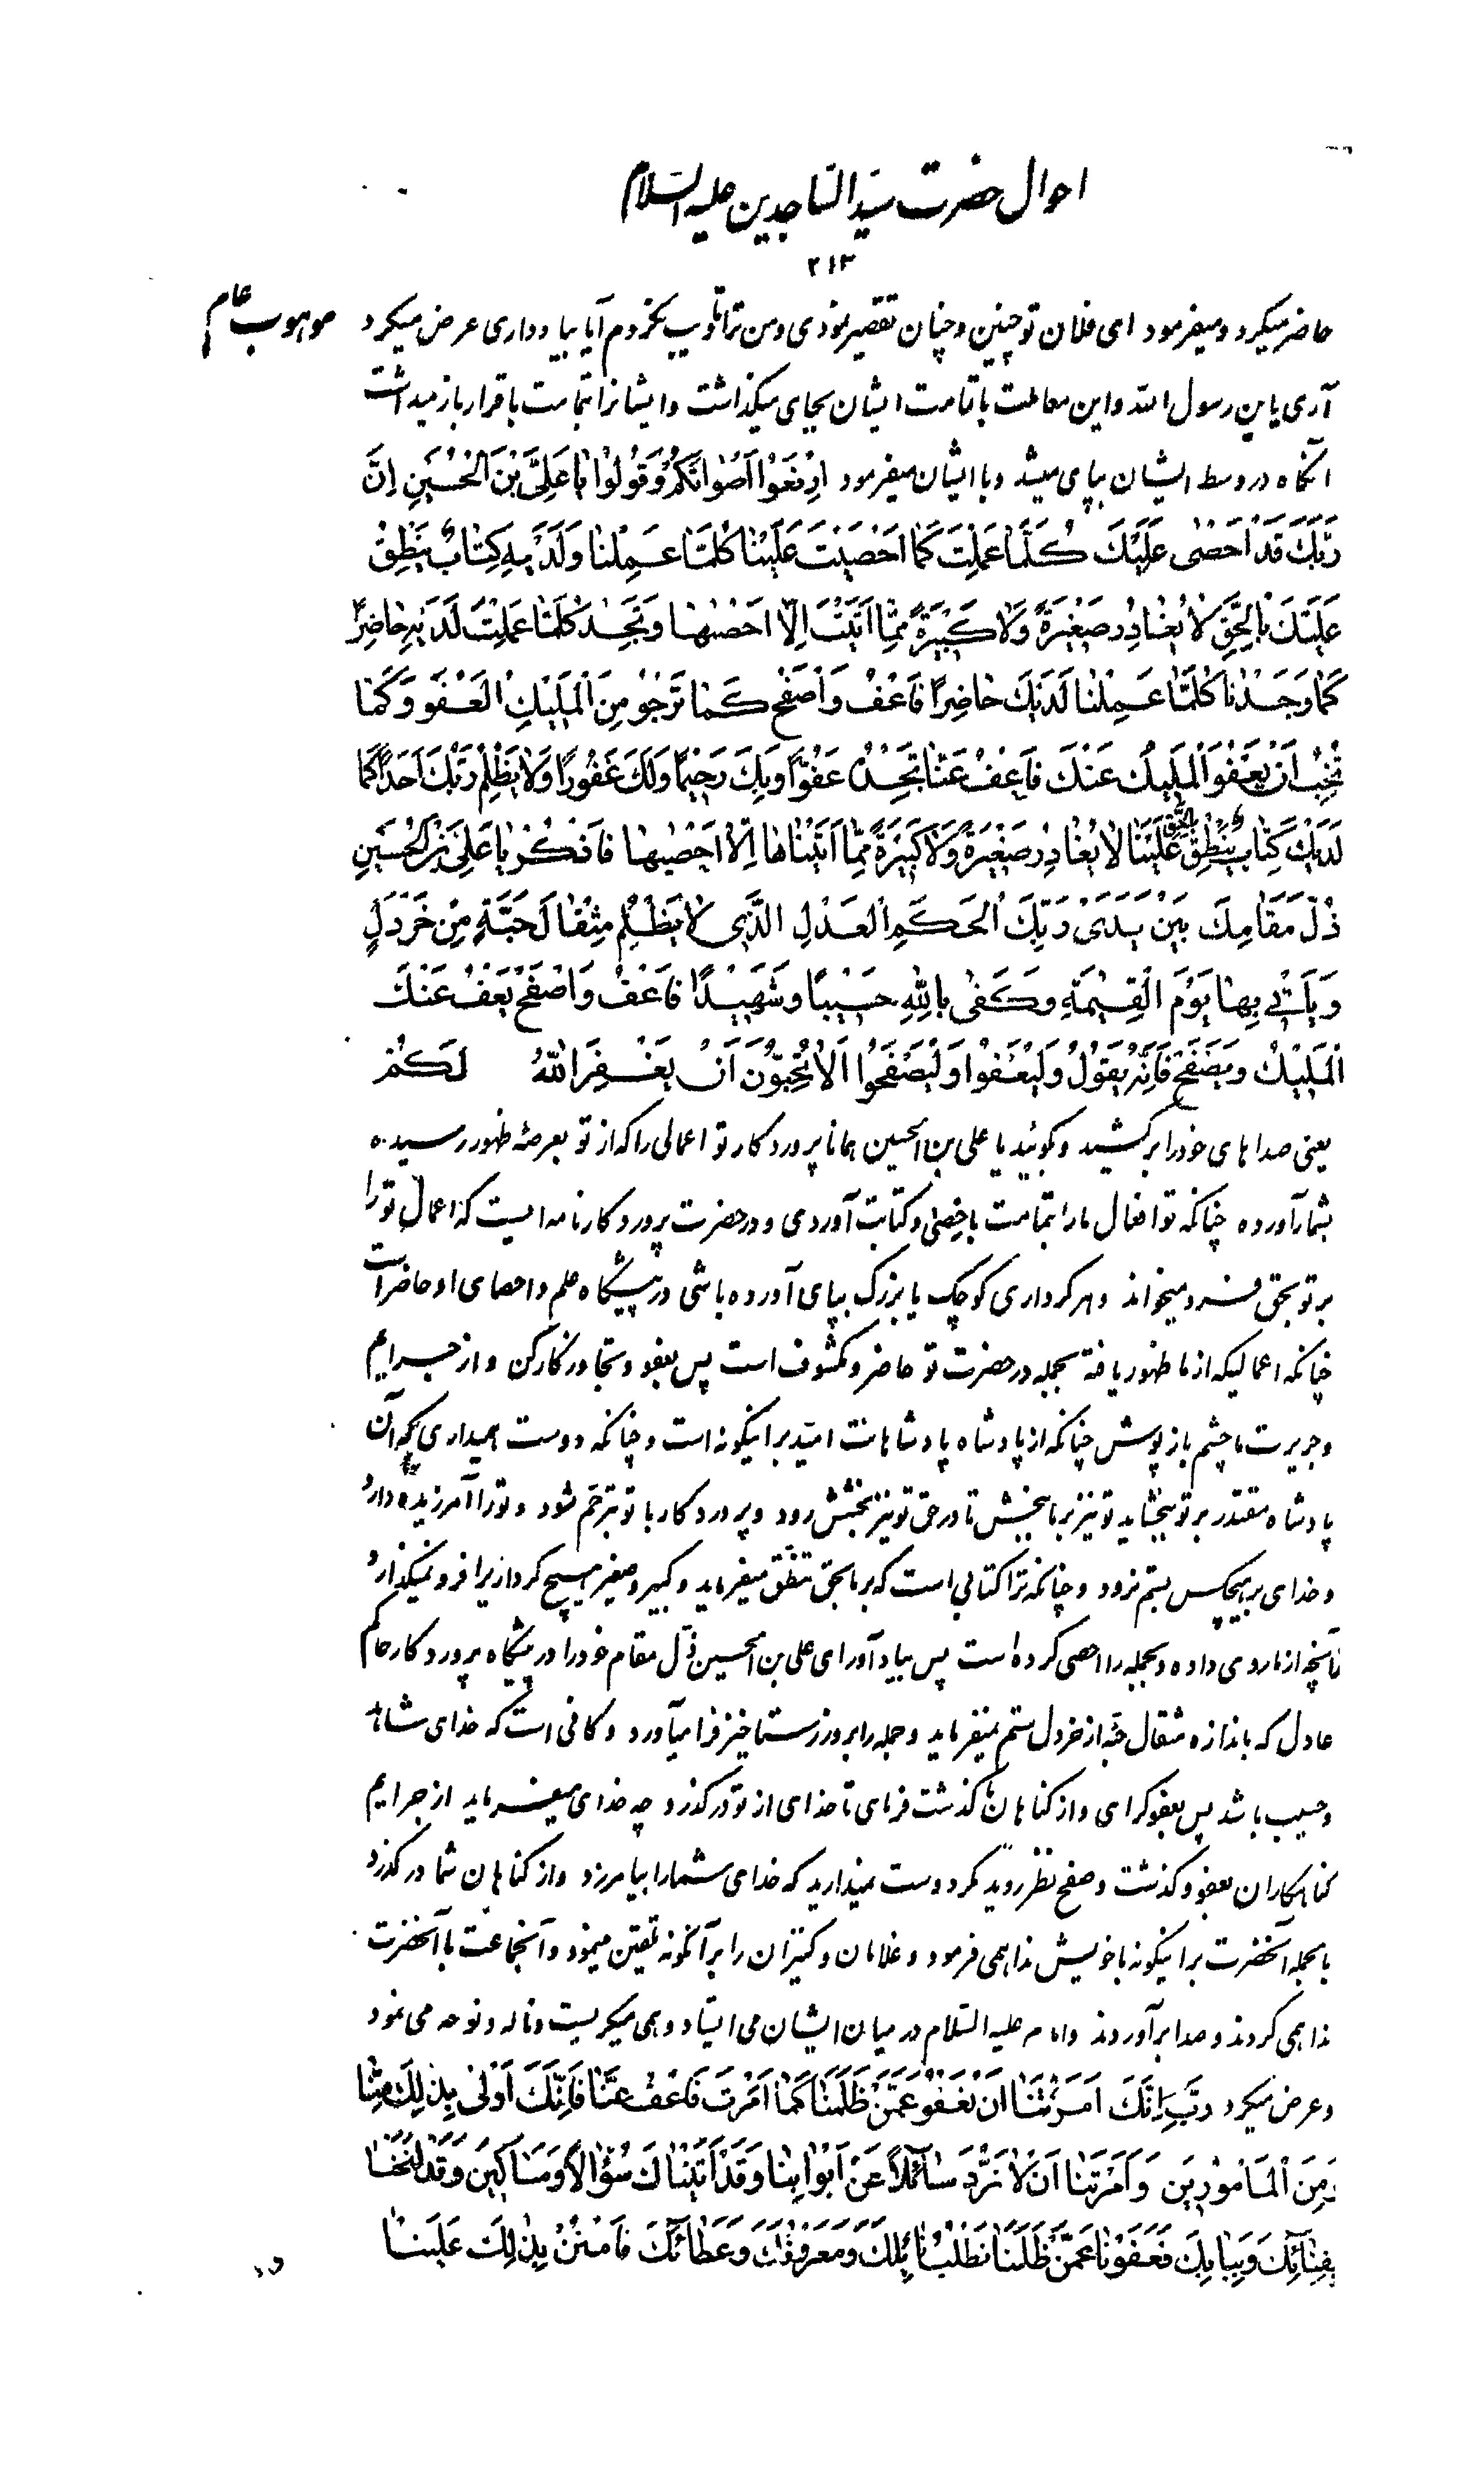 احوال حضرت سیّد السّاجدین علیه السّلام
۲۱۳
حاضر میکرد و میفرمود ای فلان تو چنین و چنان تقصیر نمودی و من ترا تأدیب نکردم آیا بیاد داری عرض میکرد
آری یا بن رسول الله و این معاملت با تمامت ایشان بجای میگذاشت و ایشانرا بتمامت باقرار باز میداشت
آنگاه در وسط ایشان بپای میشد و با ایشان میفرمود اِرْفَعُوْا اَصْوٰاتَکُمْ وَقُوْلُوْا یٰا عَلِیَّ بْنَ الْحُسَیْنِ اِنَّ
رَبَّکَ قَدْ اَحْصٰی عَلَیْکَ کُلَّمٰا عَمِلْتَ کَمٰا اَحْصَیْتَ عَلَیْنٰا کُلَّمٰا عَمِلْنٰا وَلَدَیْهِ کِتٰابٌ یَنْطِقُ
عَلَیْکَ بِالْحَقِّ لٰا یُغٰادِرُ صَغِیْرَةً وَلٰا کَبِیْرَةً مِمّٰا اَتَیْتَ اِلّٰا اَحْصٰیهٰا وَتَجِدُ کُلَّمٰا عَمِلْتَ لَدَیْهِ حٰاضِراً
کَمٰا وَجَدْنٰا کُلَّمٰا عَمِلْنٰا لَدَیْکَ حٰاضِراً فَاعْفُ وَاصْفَحْ کَمٰا تَرْجُوْ مِنَ الْمَلِیْکِ الْعَفْوَ وَکَمٰا
تُحِبُّ اَنْ یَعْفُوَ الْمَلِیْکُ عَنْکَ فَاعْفُ عَنّٰا تَجِدْهُ عَفُوّاً وَبِکَ رَحِیْماً وَلَکَ غَفُوْراً وَلٰا یَظْلِمُ رَبُّکَ اَحَداً کَمٰا
لَدَیْکَ کِتٰابٌ یَنْطِقُ بِالْحَقِّ عَلَیْنٰا لٰا یُغٰادِرُ صَغِیْرَةً وَلٰا کَبِیْرَةً مِمّٰا اَتَیْنٰاهٰا اِلّٰا اَحْصٰیهٰا فَاذْکُرْ یٰا عَلِیَّ بْنَ الْحُسَیْنِ
ذُلَّ مَقٰامِکَ بَیْنَ یَدَیْ رَبِّکَ الْحَکَمِ الْعَدْلِ الَّذِیْ لٰا یَظْلِمُ مِثْقٰالَ حَبَّةٍ مِنْ خَرْدَلٍ
وَیَأْتِیْ بِهٰا یَوْمَ الْقِیٰمَةِ وَکَفٰی بِاللّٰهِ حَسِیْباً وَشَهِیْداً فَاعْفُ وَاصْفَحْ یَعْفُ عَنْکَ
الْمَلِیْکُ وَیَصْفَحْ فَاِنَّهُ یَقُوْلُ وَلْیَعْفُوْا وَلْیَصْفَحُوْا اَلٰا تُحِبُّوْنَ اَنْ یَغْفِرَ اللّٰهُ لَکُمْ
یعنی صداهای خود را برکشید و بگوئید یا علی بن الحسین همانا پروردگار تو اعمالی را که از تو بعرصهٔ ظهور رسیده
بشمار آورده چنانکه تو افعال ما را بتمامت باحصی و کتابت آوردی و در حضرت پروردگار نامه ایست که اعمال تو را
بر تو بحق فرو میخواند و هر کرداری کوچک یا بزرگ بپای آورده باشی در پیشگاه علم و احصای او حاضر است
چنانکه اعمالیکه از ما ظهور یافته بجمله در حضرت تو حاضر و مکشوف است پس بعفو و تجاوز کار کن و از جرایم
و جریرت ما چشم باز پوش چنانکه از پادشاه پادشاهانت امّید بر اینگونه است و چنانکه دوست همیداری که آن
پادشاه مقتدر بر تو ببخشاید تو نیز بر ما ببخش تا در حق تو نیز بخشش رود و پروردگار با تو بترحّم شود و تو را آمرزیده دارد
و خدای بر هیچکس بستم نرود و چنانکه ترا کتابی است که بر ما بحق تنطّق میفرماید و کبیر و صغیر هیچ کردار را فرو نمیگذارد
تا آنچه از ما روی داده و بجمله را احصی کرده است پس بیاد آور ای علی بن الحسین ذلّ مقام خود را در پیشگاه پروردگار حاکم
عادل که باندازه مثقال حبّه از خردل ستم نمیفرماید و جمله را بروز رستاخیز فرا میآورد و کافی است که خدای شاهد
و حسیب باشد پس بعفو گرای و از گناهان ما گذشت فرمای تا خدای از تو درگذرد چه خدای میفرماید از جرایم
گناهکاران بعفو و گذشت و صفح نظر روید مگر دوست نمیدارید که خدای شما را بیامرزد و از گناهان شما درگذرد
بالجمله آنحضرت بر اینگونه با خویش ندا همی فرمود و غلامان و کنیزان را بر آنگونه تلقین مینمود و آنجماعت با آنحضرت
ندا همی کردند و صدا برآوردند و امام علیه السّلام در میان ایشان می ایستاد و همی میگریست و ناله و نوحه می نمود
و عرض میکرد رَبِّ اِنَّکَ اَمَرْتَنٰا اَنْ نَعْفُوَ عَمَّنْ ظَلَمَنٰا کَمٰا اَمَرْتَ فَاعْفُ عَنّٰا فَاِنَّکَ اَوْلٰی بِذٰلِکَ مِنّٰا
وَمِنَ الْمَأْمُوْرِیْنَ وَاَمَرْتَنٰا اَنْ لٰا نَرُدَّ سٰآئِلاً عَنْ اَبْوٰابِنٰا وَقَدْ اَتَیْنٰاکَ سُؤّٰالاً وَمَسٰاکِیْنَ وَقَدْ اَنَخْنٰا
بِفِنٰآئِکَ وَبِبٰابِکَ فَعَفَوْنٰا عَمَّنْ ظَلَمَنٰا نَطْلُبُ نٰائِلَکَ وَمَعْرُوْفَکَ وَعَطٰآئَکَ فَامْنُنْ بِذٰلِکَ عَلَیْنٰا